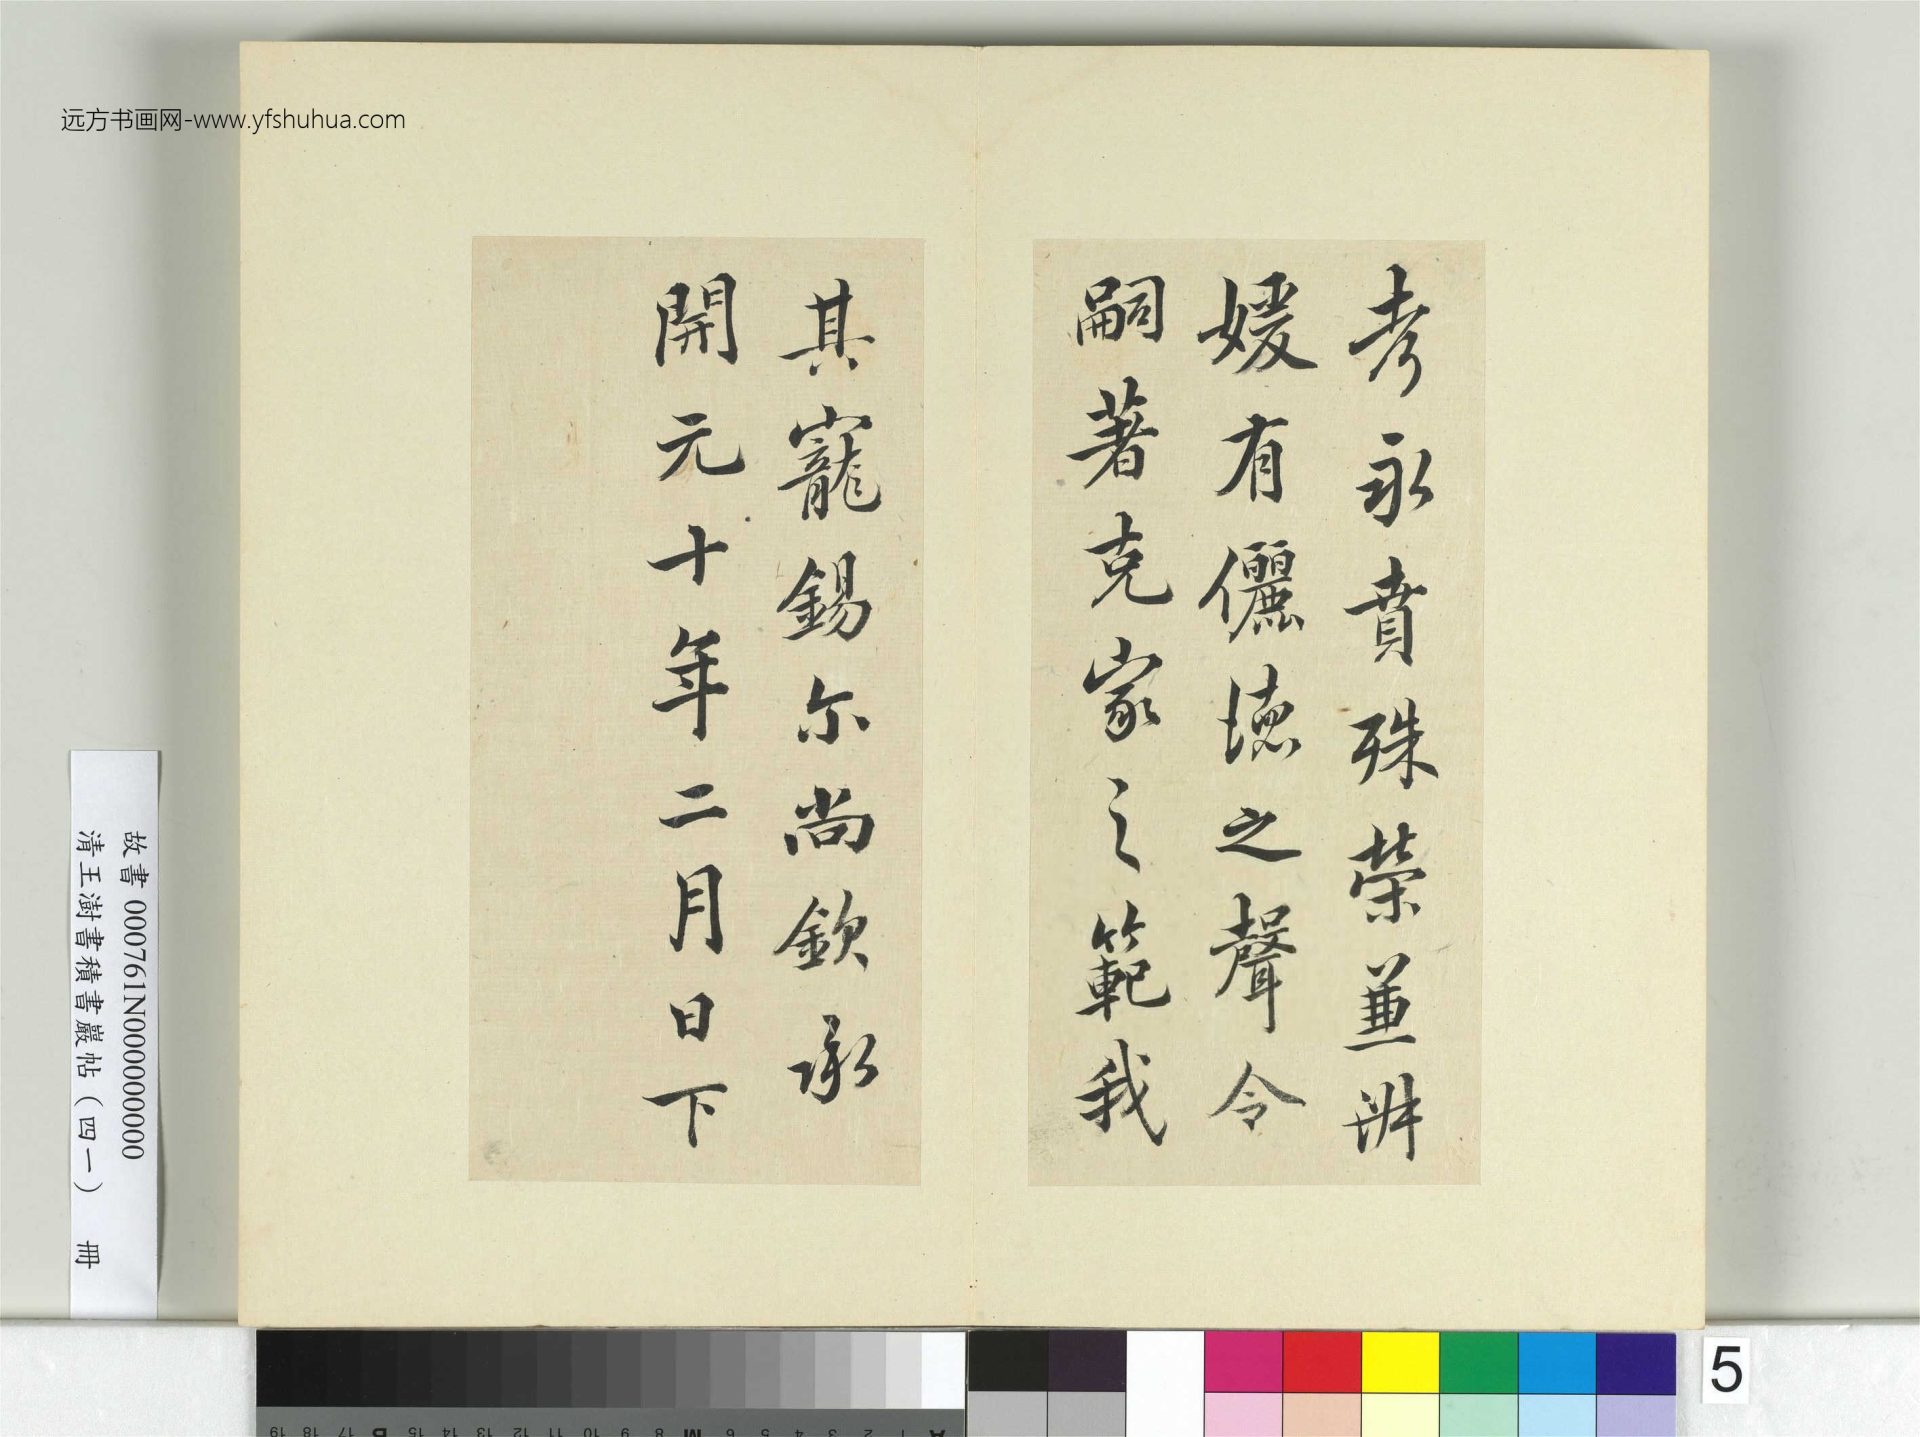 远方书画网-www.yfshuhua.com
考永賁殊榮兼斑
媛有儷德之聲令
嗣著克家之範我
其寵錫尔尚欽承
開元十年二月日下
故書 000761N000000000
清王澍書積書巖帖(四一) 冊
5